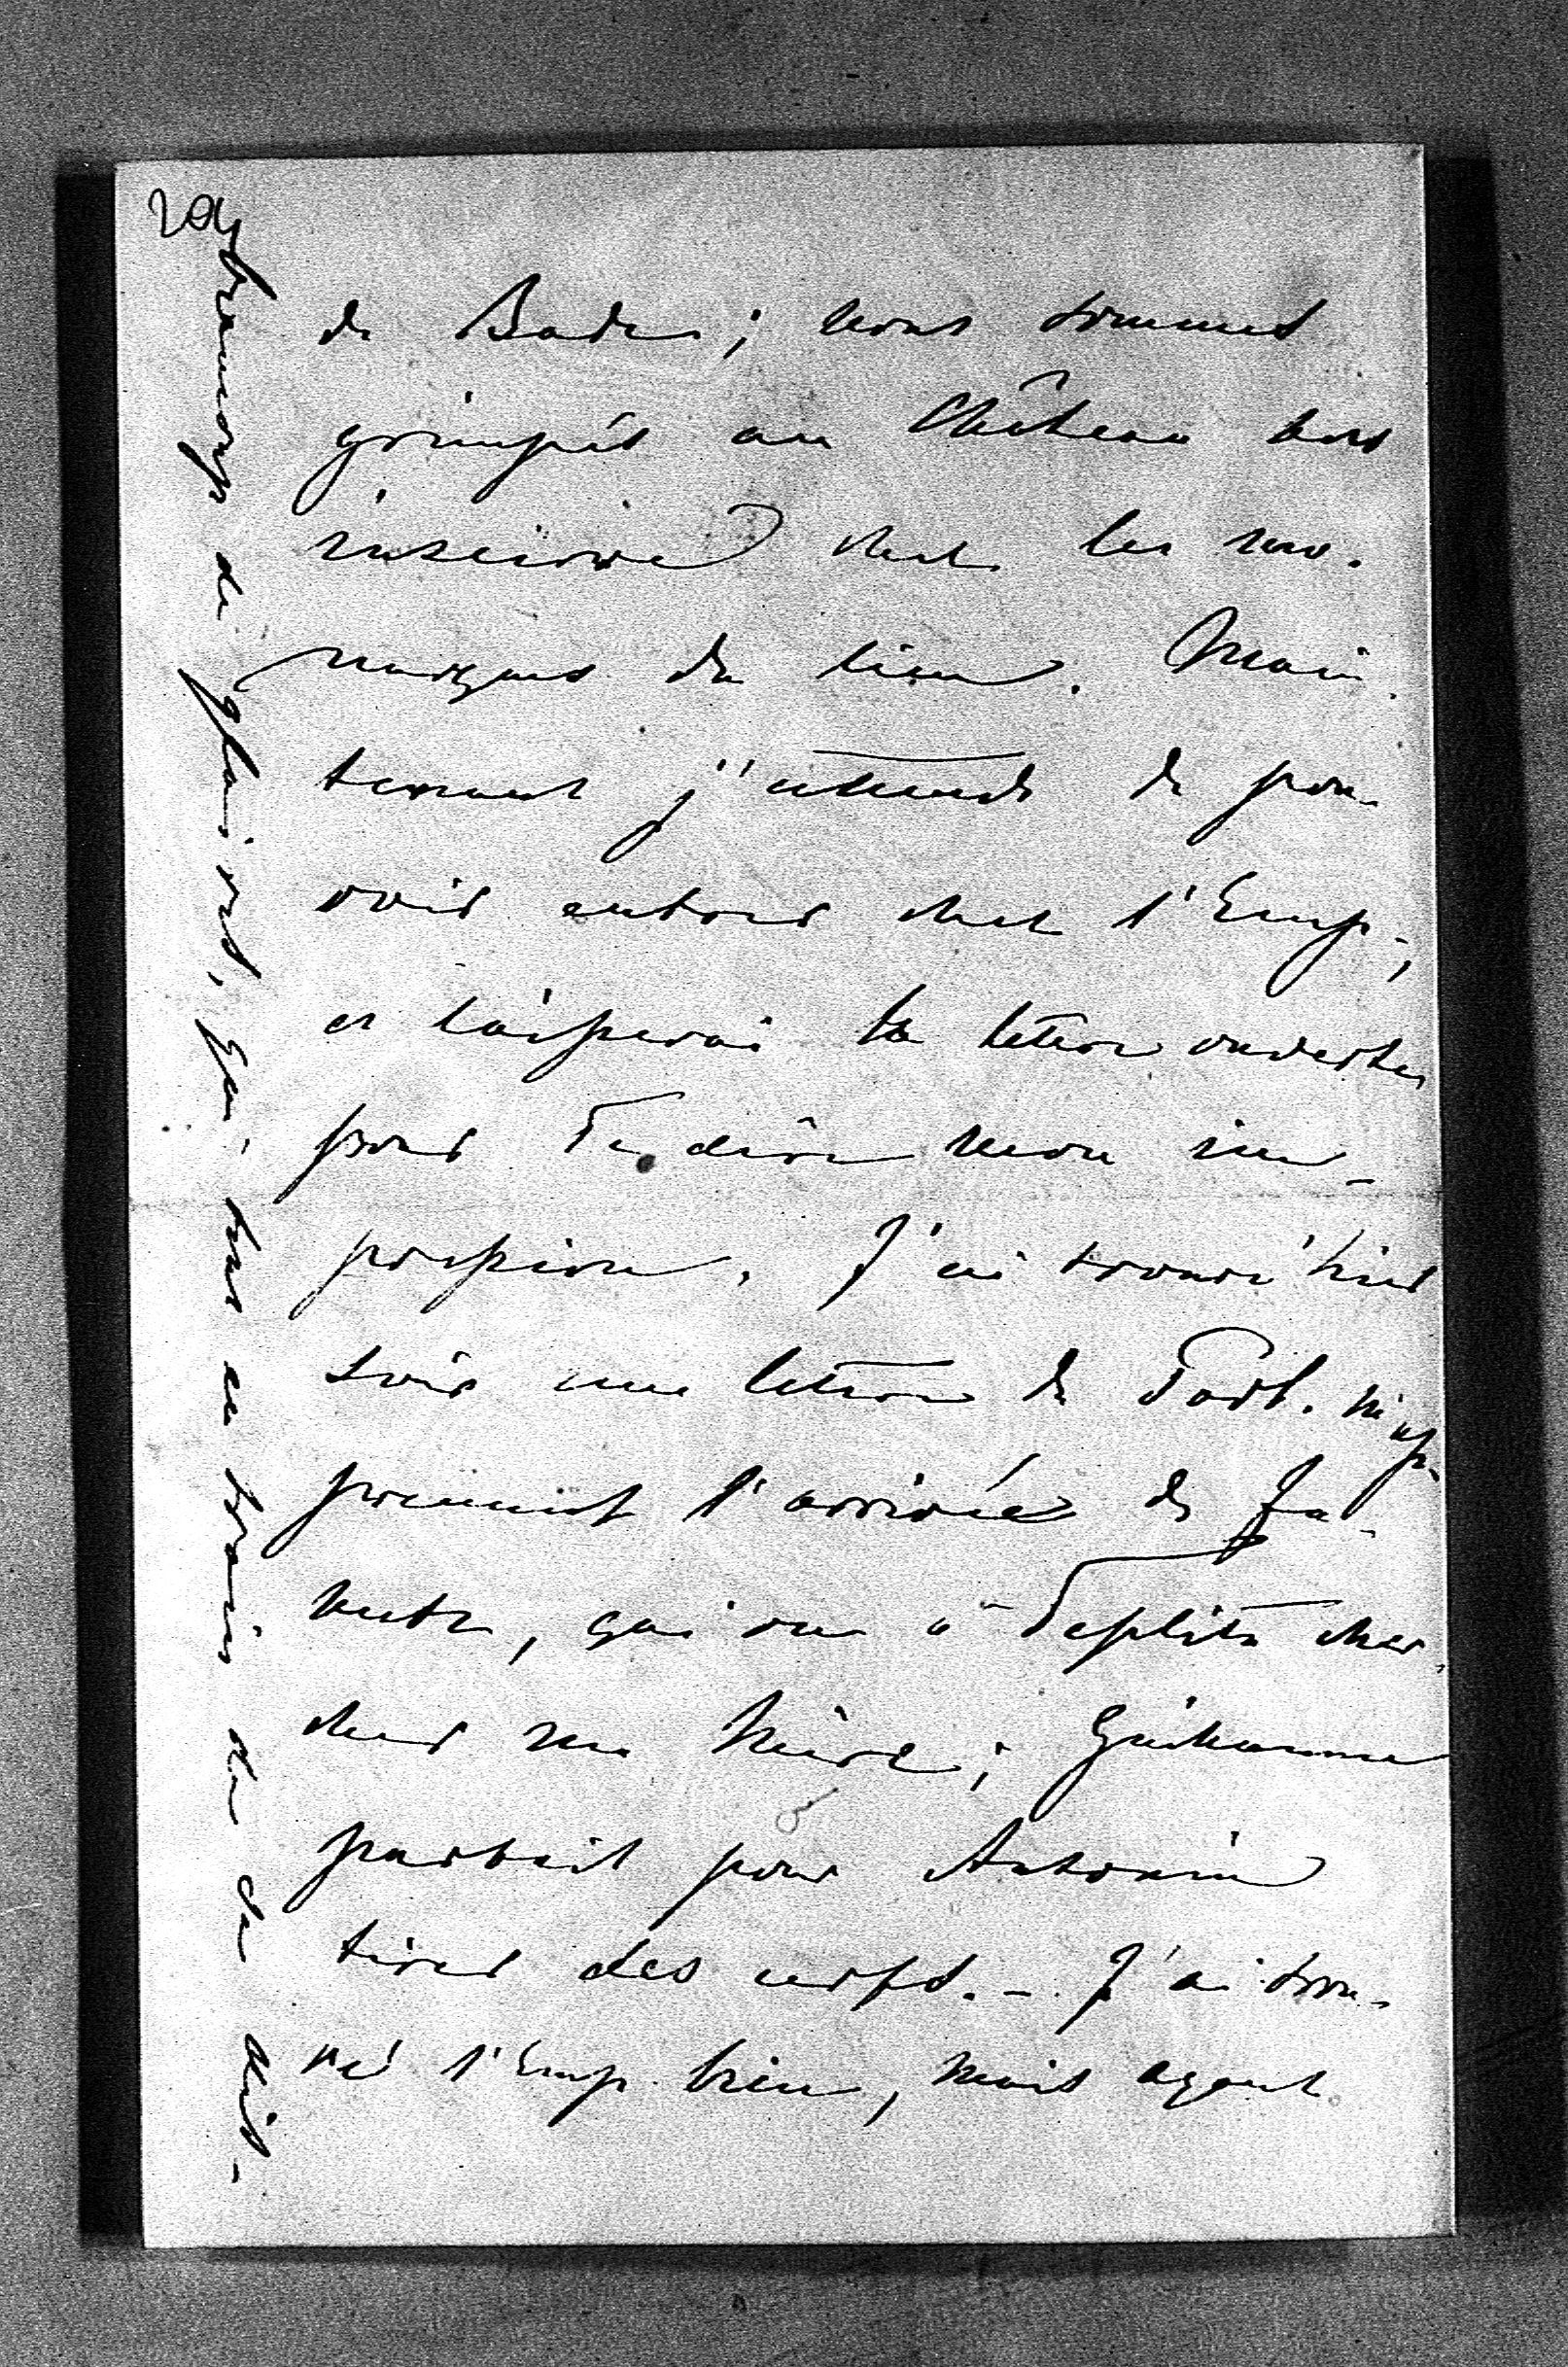 204
de Bade; nous sommes
grimpés au Château nous
inscrire chez les mo-
narques du lieu. Main-
tenant j'attends de pou-
voir entrer chez l'Emp.,
et laisserai la lettre ouverte
pour Te dire mon im-
pression. J'ai trouvé hier
soir une lettre de m'ap-
prenant l'arrivée de Fa-
nette, qui va à Teplitz cher-
cher sa Mère; Guillaume
partait pour Antonin
tirer des cerfs. - J'ai trou-
vé l'Emp. bien, mais ayant
beaucoup de qui est en train de se